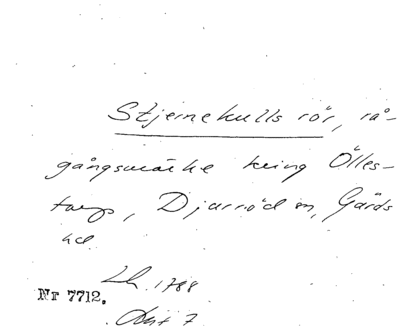 Stjernekulls rör, rå-
gångsmärke kring Ölles-
torp, Djurröd sn, Gärds
hd.
Lh. 1788
Nr 7712.
Akt 7